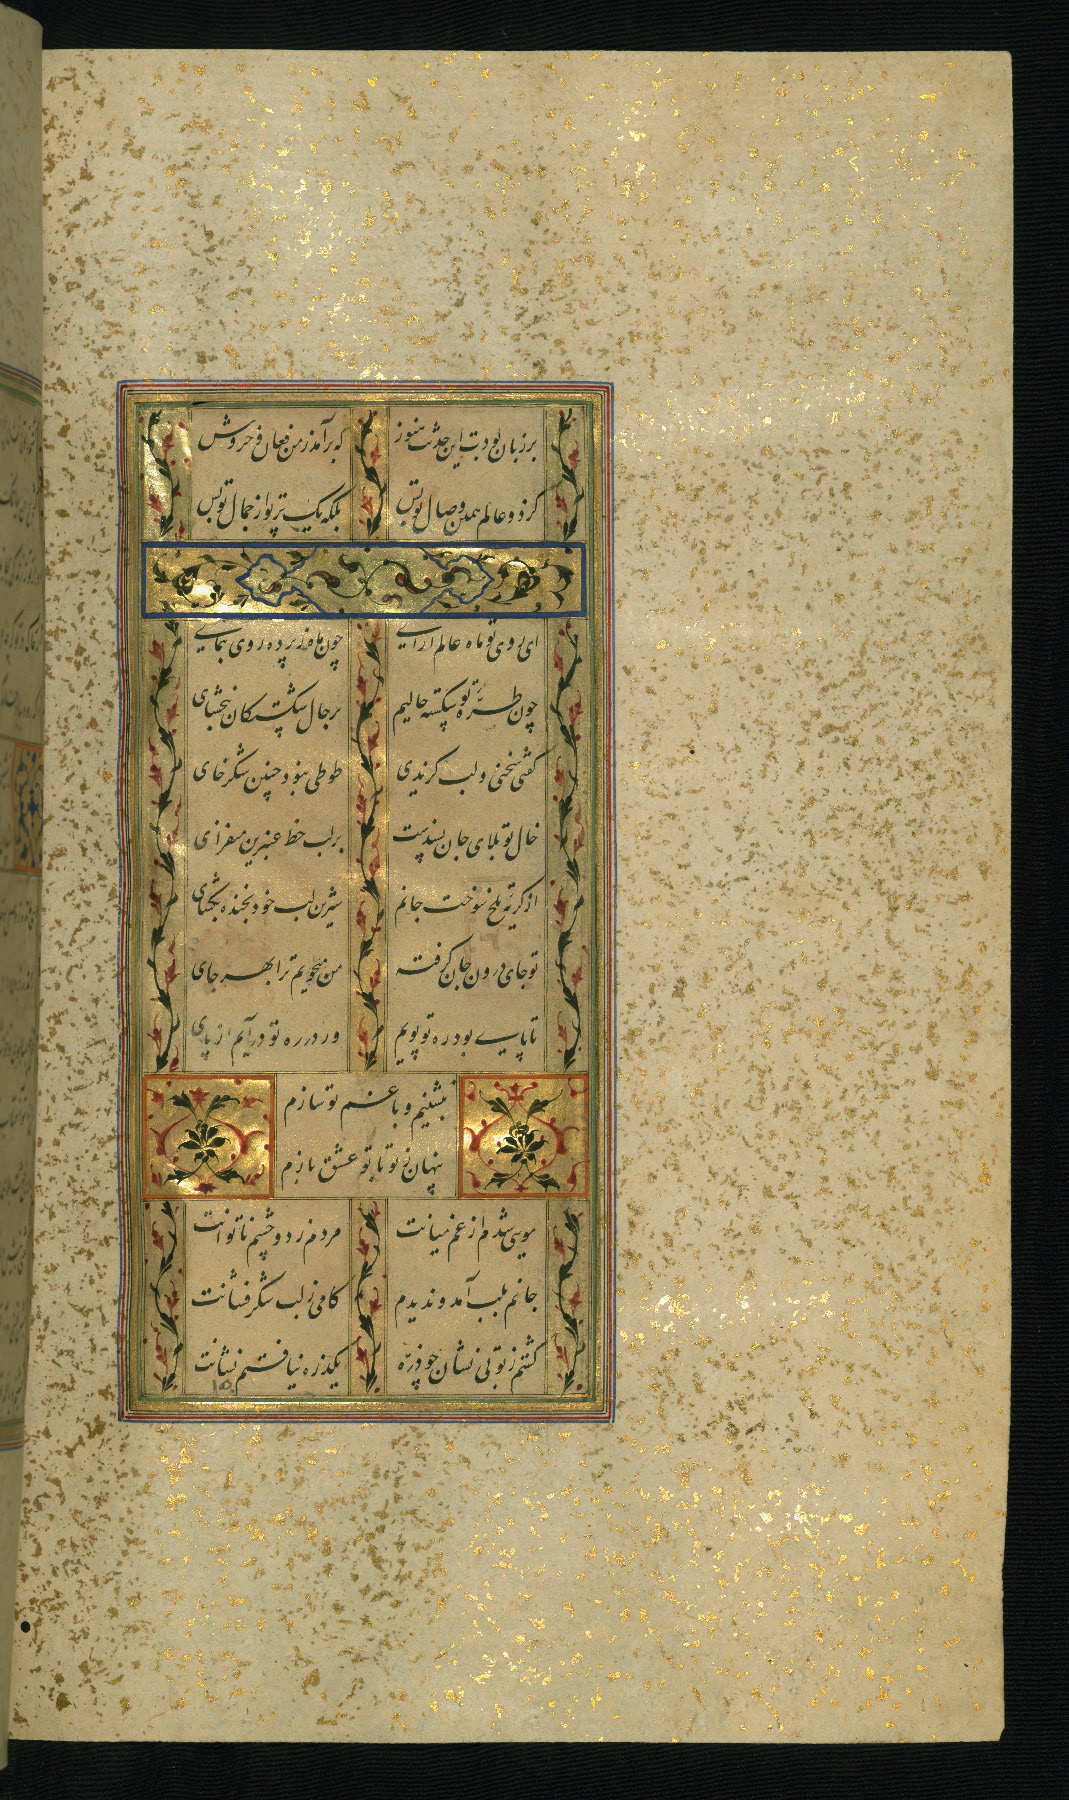 بر زبان بودت این حدیث هنوز که بر آمد ز من فغان و خروش
کز دو عالم همین وصال تو بس بلکه یک پرتو از جمال تو بس
ای روی تو ماه عالم ارایی چون ماه ز پرده روی بنمایی
چون طره تو شکسته حالیم بر حال شکستگان ببخشای
گفتی سخنی و لب گزیدی طوطی نبود چنین شکر خای
خال تو بلای جان پسندست بر لب خط عنبرین میفزای
از گریه تلخ سوخت جانم شیرین لب خود بخنده بگشای
تو جای درون جان گرفته من میجویم ترا بهر جای
تا پایی بود ره تو پویم ور در ره تو درآیم از پای
بنشینم و با غم تو سازم
پنهان ز تو با تو عشق بازم
مویی شدم از غم میانت مردم ز دو چشم ناتوانت
جانم بلب آمد و ندیدم کامی ز لب شکر فشانت
گشتم ز تو بی نشان چو ذره یکذره نیافتم نشانت